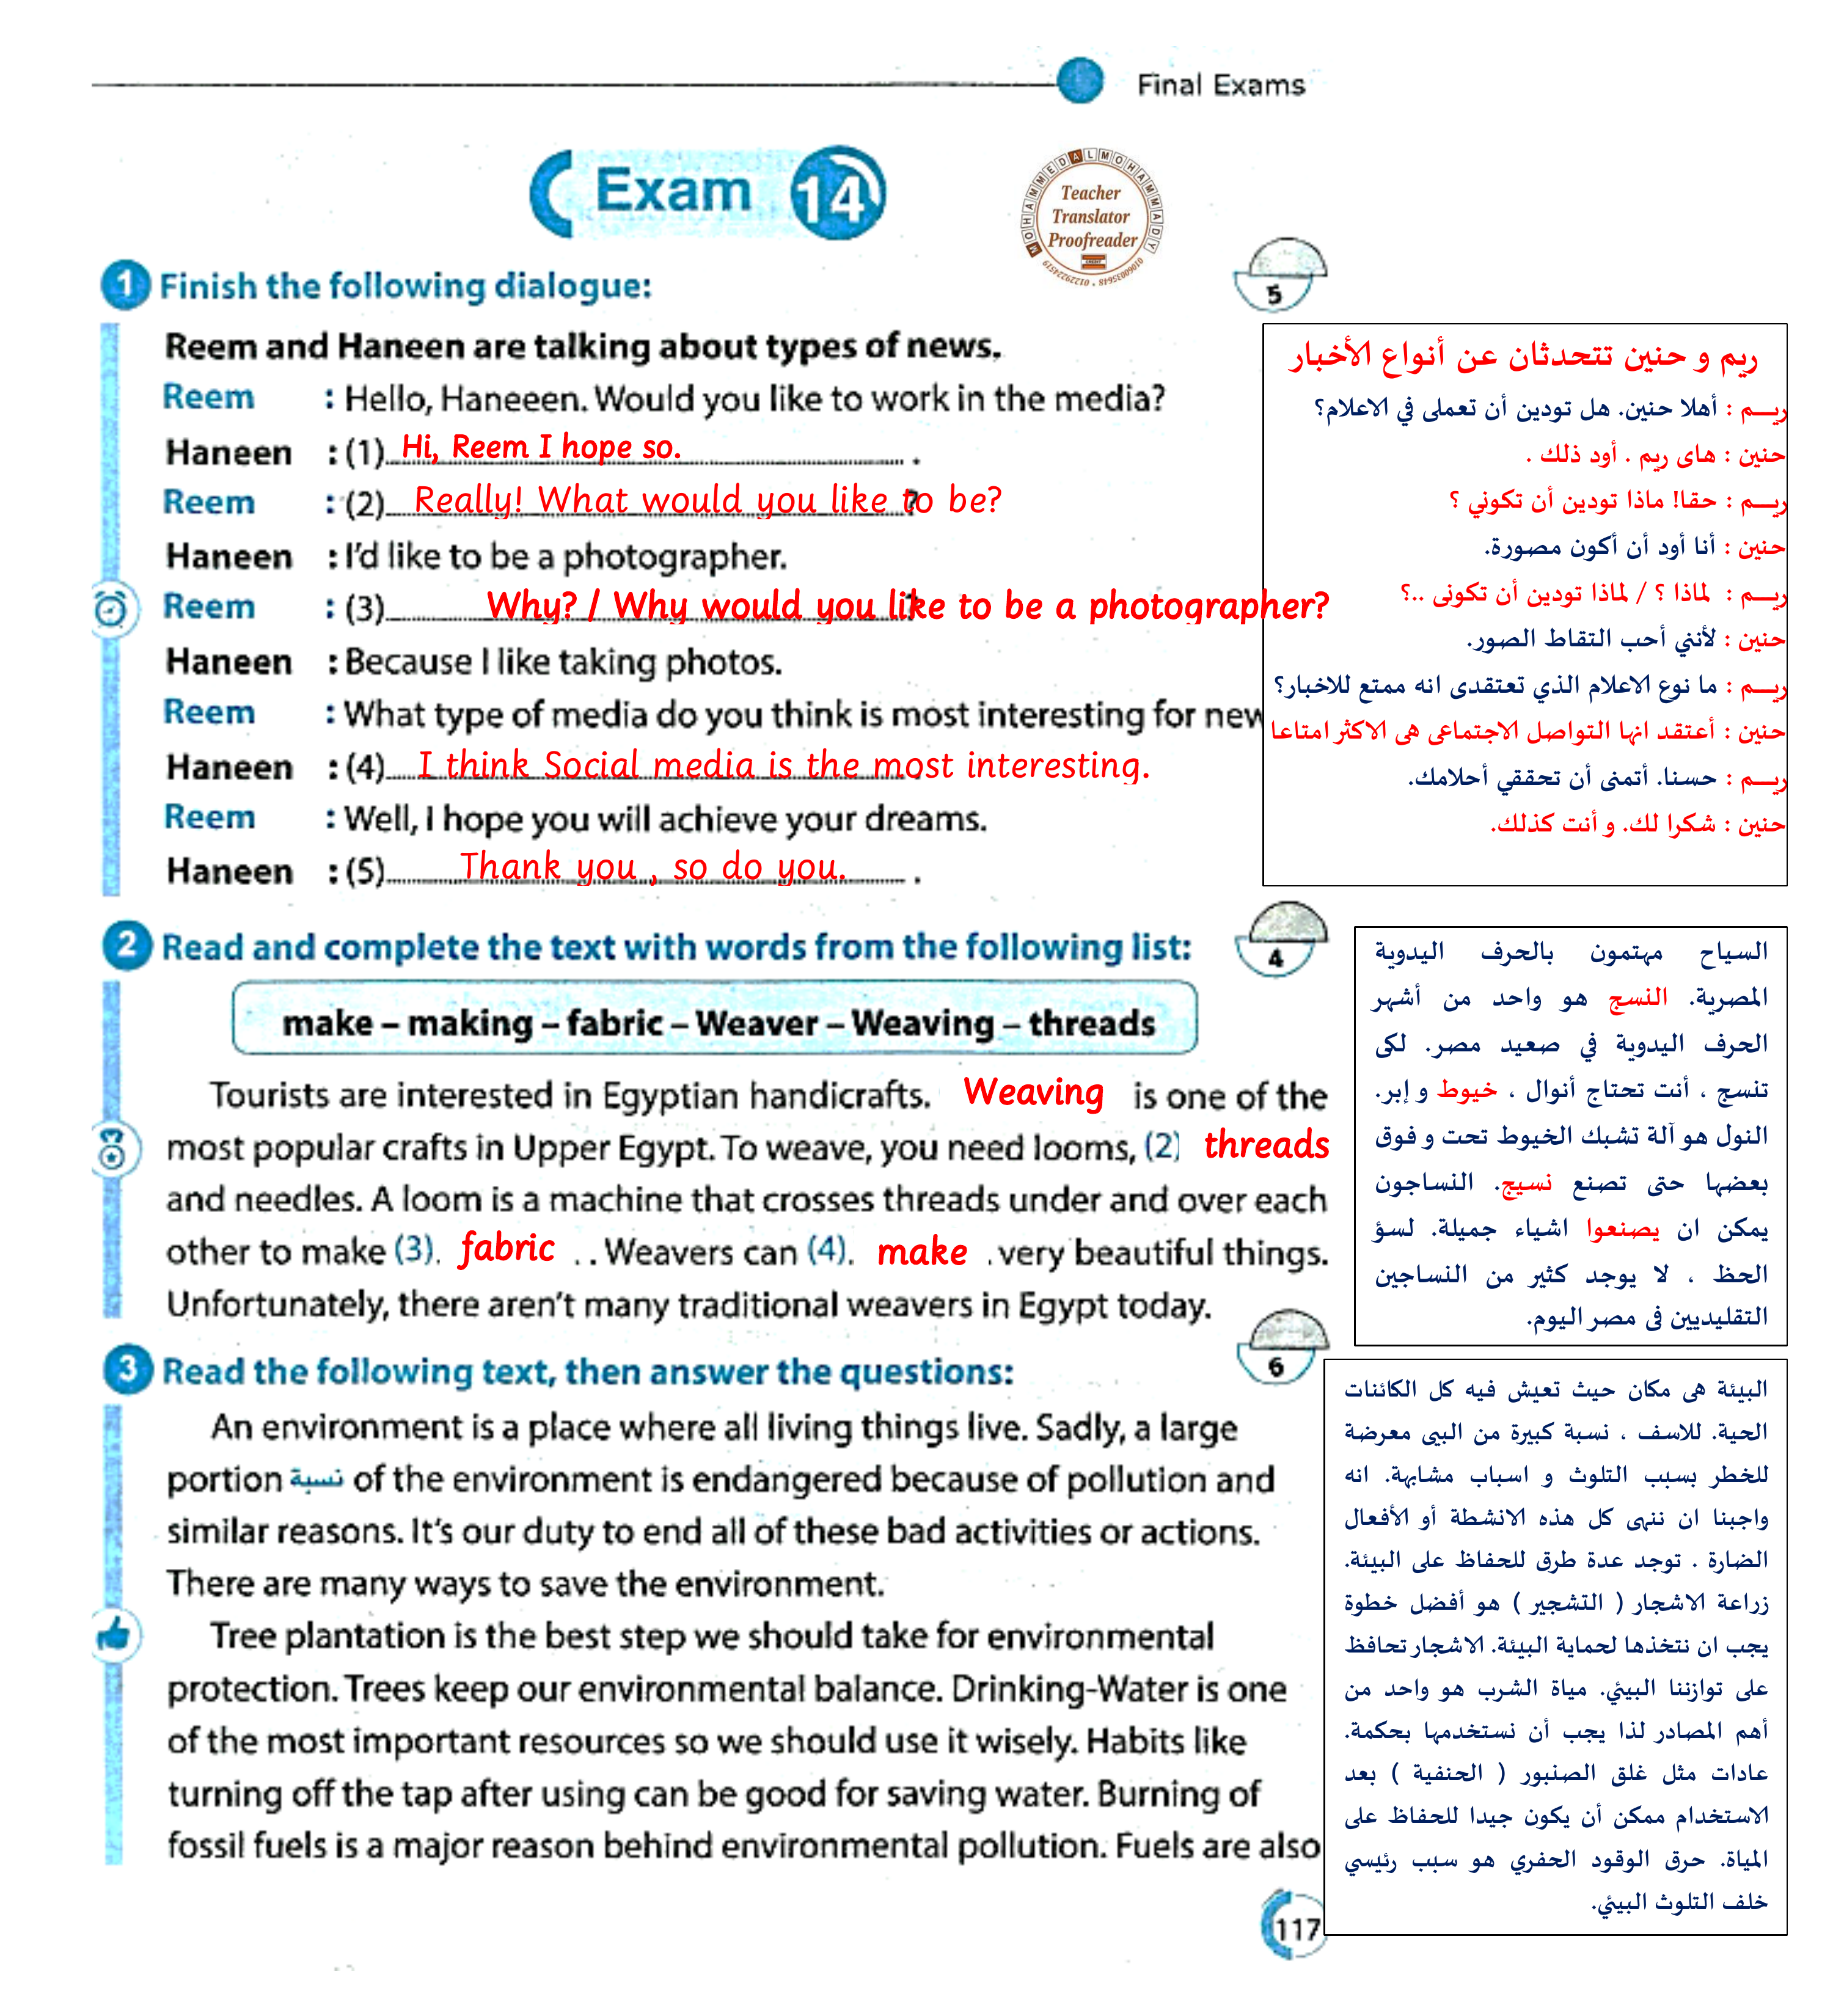 Final Exams
Exam 14
MOHAMMEDALMOHAMMADY
Teacher
Translator
Proofreader
01060035648 • 01229224519
1 Finish the following dialogue:
5
Reem and Haneen are talking about types of news.
Reem : Hello, Haneeen. Would you like to work in the media?
Haneen : (1) Hi, Reem I hope so. .
Reem : (2) Really! What would you like to be? ?
Haneen : I'd like to be a photographer.
Reem : (3) Why? / Why would you like to be a photographer?
Haneen : Because I like taking photos.
Reem : What type of media do you think is most interesting for new
Haneen : (4) I think Social media is the most interesting.
Reem : Well, I hope you will achieve your dreams.
Haneen : (5) Thank you , so do you. .
ريم و حنين تتحدثان عن أنواع الأخبار
ريـــم : أهلا حنين. هل تودين أن تعملى في الاعلام؟
حنين : هاى ريم . أود ذلك .
ريـــم : حقا! ماذا تودين أن تكوني ؟
حنين : أنا أود أن أكون مصورة.
ريـــم : لماذا ؟ / لماذا تودين أن تكونى ..؟
حنين : لأنني أحب التقاط الصور.
ريـــم : ما نوع الاعلام الذي تعتقدى انه ممتع للاخبار؟
حنين : أعتقد انها التواصل الاجتماعى هى الاكثر امتاعا
ريـــم : حسنا. أتمنى أن تحققي أحلامك.
حنين : شكرا لك. و أنت كذلك.
2 Read and complete the text with words from the following list:
4
make – making – fabric – Weaver – Weaving – threads
Tourists are interested in Egyptian handicrafts. Weaving is one of the
most popular crafts in Upper Egypt. To weave, you need looms, (2) threads
and needles. A loom is a machine that crosses threads under and over each
other to make (3). fabric . . Weavers can (4). make . very beautiful things.
Unfortunately, there aren't many traditional weavers in Egypt today.
السياح مهتمون بالحرف اليدوية
المصرية. النسج هو واحد من أشهر
الحرف اليدوية في صعيد مصر. لكى
تنسج ، أنت تحتاج أنوال ، خيوط و إبر.
النول هو آلة تشبك الخيوط تحت و فوق
بعضها حتى تصنع نسيج. النساجون
يمكن ان يصنعوا اشياء جميلة. لسؤ
الحظ ، لا يوجد كثير من النساجين
التقليديين فى مصر اليوم.
3 Read the following text, then answer the questions:
6
An environment is a place where all living things live. Sadly, a large
portion نسبة of the environment is endangered because of pollution and
similar reasons. It's our duty to end all of these bad activities or actions.
There are many ways to save the environment.
Tree plantation is the best step we should take for environmental
protection. Trees keep our environmental balance. Drinking-Water is one
of the most important resources so we should use it wisely. Habits like
turning off the tap after using can be good for saving water. Burning of
fossil fuels is a major reason behind environmental pollution. Fuels are also
البيئة هى مكان حيث تعيش فيه كل الكائنات
الحية. للاسف ، نسبة كبيرة من البيى معرضة
للخطر بسبب التلوث و اسباب مشابهة. انه
واجبنا ان ننهى كل هذه الانشطة أو الأفعال
الضارة . توجد عدة طرق للحفاظ على البيئة.
زراعة الاشجار ( التشجير ) هو أفضل خطوة
يجب ان نتخذها لحماية البيئة. الاشجار تحافظ
على توازننا البيئي. مياة الشرب هو واحد من
أهم المصادر لذا يجب أن نستخدمها بحكمة.
عادات مثل غلق الصنبور ( الحنفية ) بعد
الاستخدام ممكن أن يكون جيدا للحفاظ على
المياة. حرق الوقود الحفري هو سبب رئيسي
خلف التلوث البيئي.
117